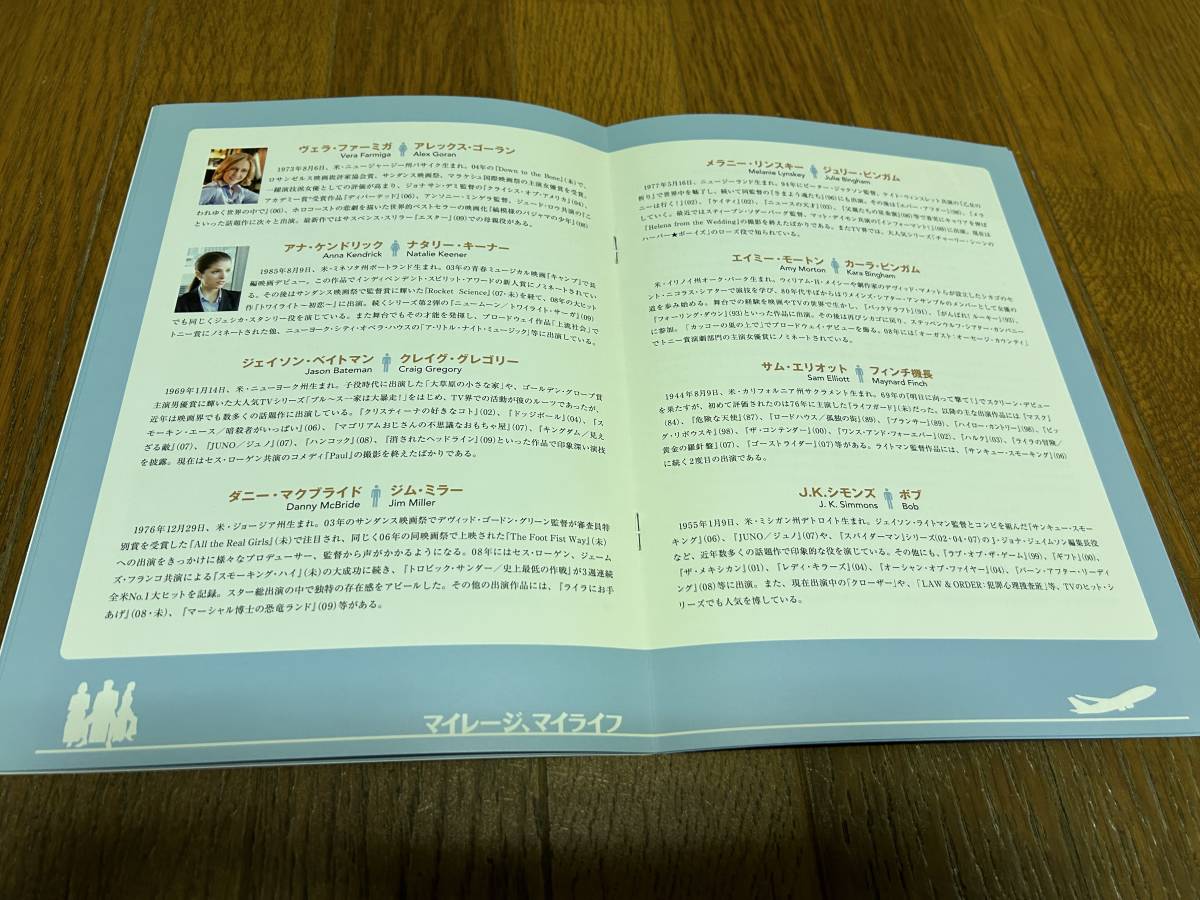 ヴェラ・ファーミガ アレックス・ゴーラン
Vera Farmiga Alex Goran
1973年8月6日、米・ニュージャージー州パサイク生まれ。04年の『Down to the Bone』(未)で、
ロサンゼルス映画批評家協会賞、サンダンス映画祭、マラケシュ国際映画祭の主演女優賞を受賞。
一躍演技派女優としての評価が高まり、ジョナサン・デミ監督の『クライシス・オブ・アメリカ』(04)、
アカデミー賞®受賞作品『ディパーテッド』(06)、アンソニー・ミンゲラ監督、ジュード・ロウ共演の『こ
われゆく世界の中で』(06)、ホロコーストの悲劇を描いた世界的ベストセラーの映画化『縞模様のパジャマの少年』(08)
といった話題作に次々と出演。最新作ではサスペンス・スリラー『エスター』(09)での母親役がある。
アナ・ケンドリック ナタリー・キーナー
Anna Kendrick Natalie Keener
1985年8月9日、米・ミネソタ州ポートランド生まれ。03年の青春ミュージカル映画『キャンプ』で長
編映画デビュー。この作品でインディペンデント・スピリット・アワードの新人賞にノミネートされてい
る。その後はサンダンス映画祭で監督賞に輝いた『Rocket Science』(07・未)を経て、08年の大ヒット
作『トワイライト〜初恋〜』に出演。続くシリーズ第2弾の『ニュームーン/トワイライト・サーガ』(09)
でも同じくジェシカ・スタンリー役を演じている。また舞台でもその才能を発揮し、ブロードウェイ作品「上流社会」で
トニー賞にノミネートされた他、ニューヨーク・シティ・オペラ・ハウスの「ア・リトル・ナイト・ミュージック」等に出演している。
ジェイソン・ベイトマン クレイグ・グレゴリー
Jason Bateman Craig Gregory
1969年1月14日、米・ニューヨーク州生まれ。子役時代に出演した「大草原の小さな家」や、ゴールデン・グローブ賞
主演男優賞に輝いた大人気TVシリーズ「ブル〜ス一家は大暴走!」をはじめ、TV界での活動が彼のルーツであったが、
近年は映画界でも数多くの話題作に出演している。『クリスティーナの好きなコト』(02)、『ドッジボール』(04)、『ス
モーキン・エース/暗殺者がいっぱい』(06)、『マゴリアムおじさんの不思議なおもちゃ屋』(07)、『キングダム/見え
ざる敵』(07)、『JUNO/ジュノ』(07)、『ハンコック』(08)、『消されたヘッドライン』(09)といった作品で印象深い演技
を披露。現在はセス・ローゲン共演のコメディ『Paul』の撮影を終えたばかりである。
ダニー・マクブライド ジム・ミラー
Danny McBride Jim Miller
1976年12月29日、米・ジョージア州生まれ。03年のサンダンス映画祭でデヴィッド・ゴードン・グリーン監督が審査員特
別賞を受賞した『All the Real Girls』(未)で注目され、同じく06年の同映画祭で上映された『The Foot Fist Way』(未)
への出演をきっかけに様々なプロデューサー、監督から声がかかるようになる。08年にはセス・ローゲン、ジェーム
ズ・フランコ共演による『スモーキング・ハイ』(未)の大成功に続き、『トロピック・サンダー/史上最低の作戦』が3週連続
全米No.1大ヒットを記録。スター総出演の中で独特の存在感をアピールした。その他の出演作品には、『ライラにお手
あげ』(08・未)、『マーシャル博士の恐竜ランド』(09)等がある。
メラニー・リンスキー ジュリー・ビンガム
Melanie Lynskey Julie Bingham
1977年5月16日、ニュージーランド生まれ。94年にピーター・ジャクソン監督、ケイト・ウィンスレット共演の『乙女の
祈り』で世界中を魅了し、続いて同監督の『さまよう魂たち』(96)にも出演。その後は『エバー・アフター』(98)、『メラ
ニーは行く!』(02)、『ケイティ』(02)、『ニュースの天才』(03)、『父親たちの星条旗』(06)等で着実にキャリアを伸ば
していく。最近ではスティーブン・ソダーバーグ監督、マット・デイモン共演の『インフォーマント!』(09)に出演。現在は
『Helena from the Wedding』の撮影を終えたばかりである。またTV界では、大人気シリーズ「チャーリー・シーンの
ハーパー★ボーイズ」のローズ役で知られている。
エイミー・モートン カーラ・ビンガム
Amy Morton Kara Bingham
米・イリノイ州オーク・パーク生まれ。ウィリアム・H・メイシーや劇作家のデヴィッド・マメットらが設立したシカゴのセ
ント・ニコラス・シアターで演技を学び、80年代半ばからはリメインズ・シアター・アンサンブルのメンバーとして女優の
道を歩み始める。舞台での経験を映画やTVの世界で生かし、『バックドラフト』(91)、『がんばれ!ルーキー』(93)、
『フォーリング・ダウン』(93)といった作品に出演。その後は再びシカゴに戻り、ステッペンウルフ・シアター・カンパニー
に参加。「カッコーの巣の上で」でブロードウェイ・デビューを飾る。08年には「オーガスト:オーセージ・カウンティ」
でトニー賞演劇部門の主演女優賞にノミネートされている。
サム・エリオット フィンチ機長
Sam Elliott Maynard Finch
1944年8月9日、米・カリフォルニア州サクラメント生まれ。69年の『明日に向って撃て!』でスクリーン・デビュー
を果たすが、初めて評価されたのは76年に主演した『ライフガード』(未)だった。以降の主な出演作には『マスク』
(84)、『危険な天使』(87)、『ロードハウス/孤独の街』(89)、『プランサー』(89)、『ハイロー・カントリー』(98)、『ビッ
グ・リボウスキ』(98)、『ザ・コンテンダー』(00)、『ワンス・アンド・フォーエバー』(02)、『ハルク』(03)、『ライラの冒険/
黄金の羅針盤』(07)、『ゴーストライダー』(07)等がある。ライトマン監督作品には、『サンキュー・スモーキング』(06)
に続く2度目の出演である。
J.K.シモンズ ボブ
J. K. Simmons Bob
1955年1月9日、米・ミシガン州デトロイト生まれ。ジェイソン・ライトマン監督とコンビを組んだ『サンキュー・スモー
キング』(06)、『JUNO/ジュノ』(07)や、『スパイダーマン』シリーズ(02・04・07)のJ・ジョナ・ジェイムソン編集長役
など、近年数多くの話題作で印象的な役を演じている。その他にも、『ラブ・オブ・ザ・ゲーム』(99)、『ギフト』(00)、
『ザ・メキシカン』(01)、『レディ・キラーズ』(04)、『オーシャン・オブ・ファイヤー』(04)、『バーン・アフター・リーディ
ング』(08)等に出演。また、現在出演中の「クローザー」や、「LAW & ORDER:犯罪心理捜査班」等、TVのヒット・シ
リーズでも人気を博している。
マイレージ、マイライフ